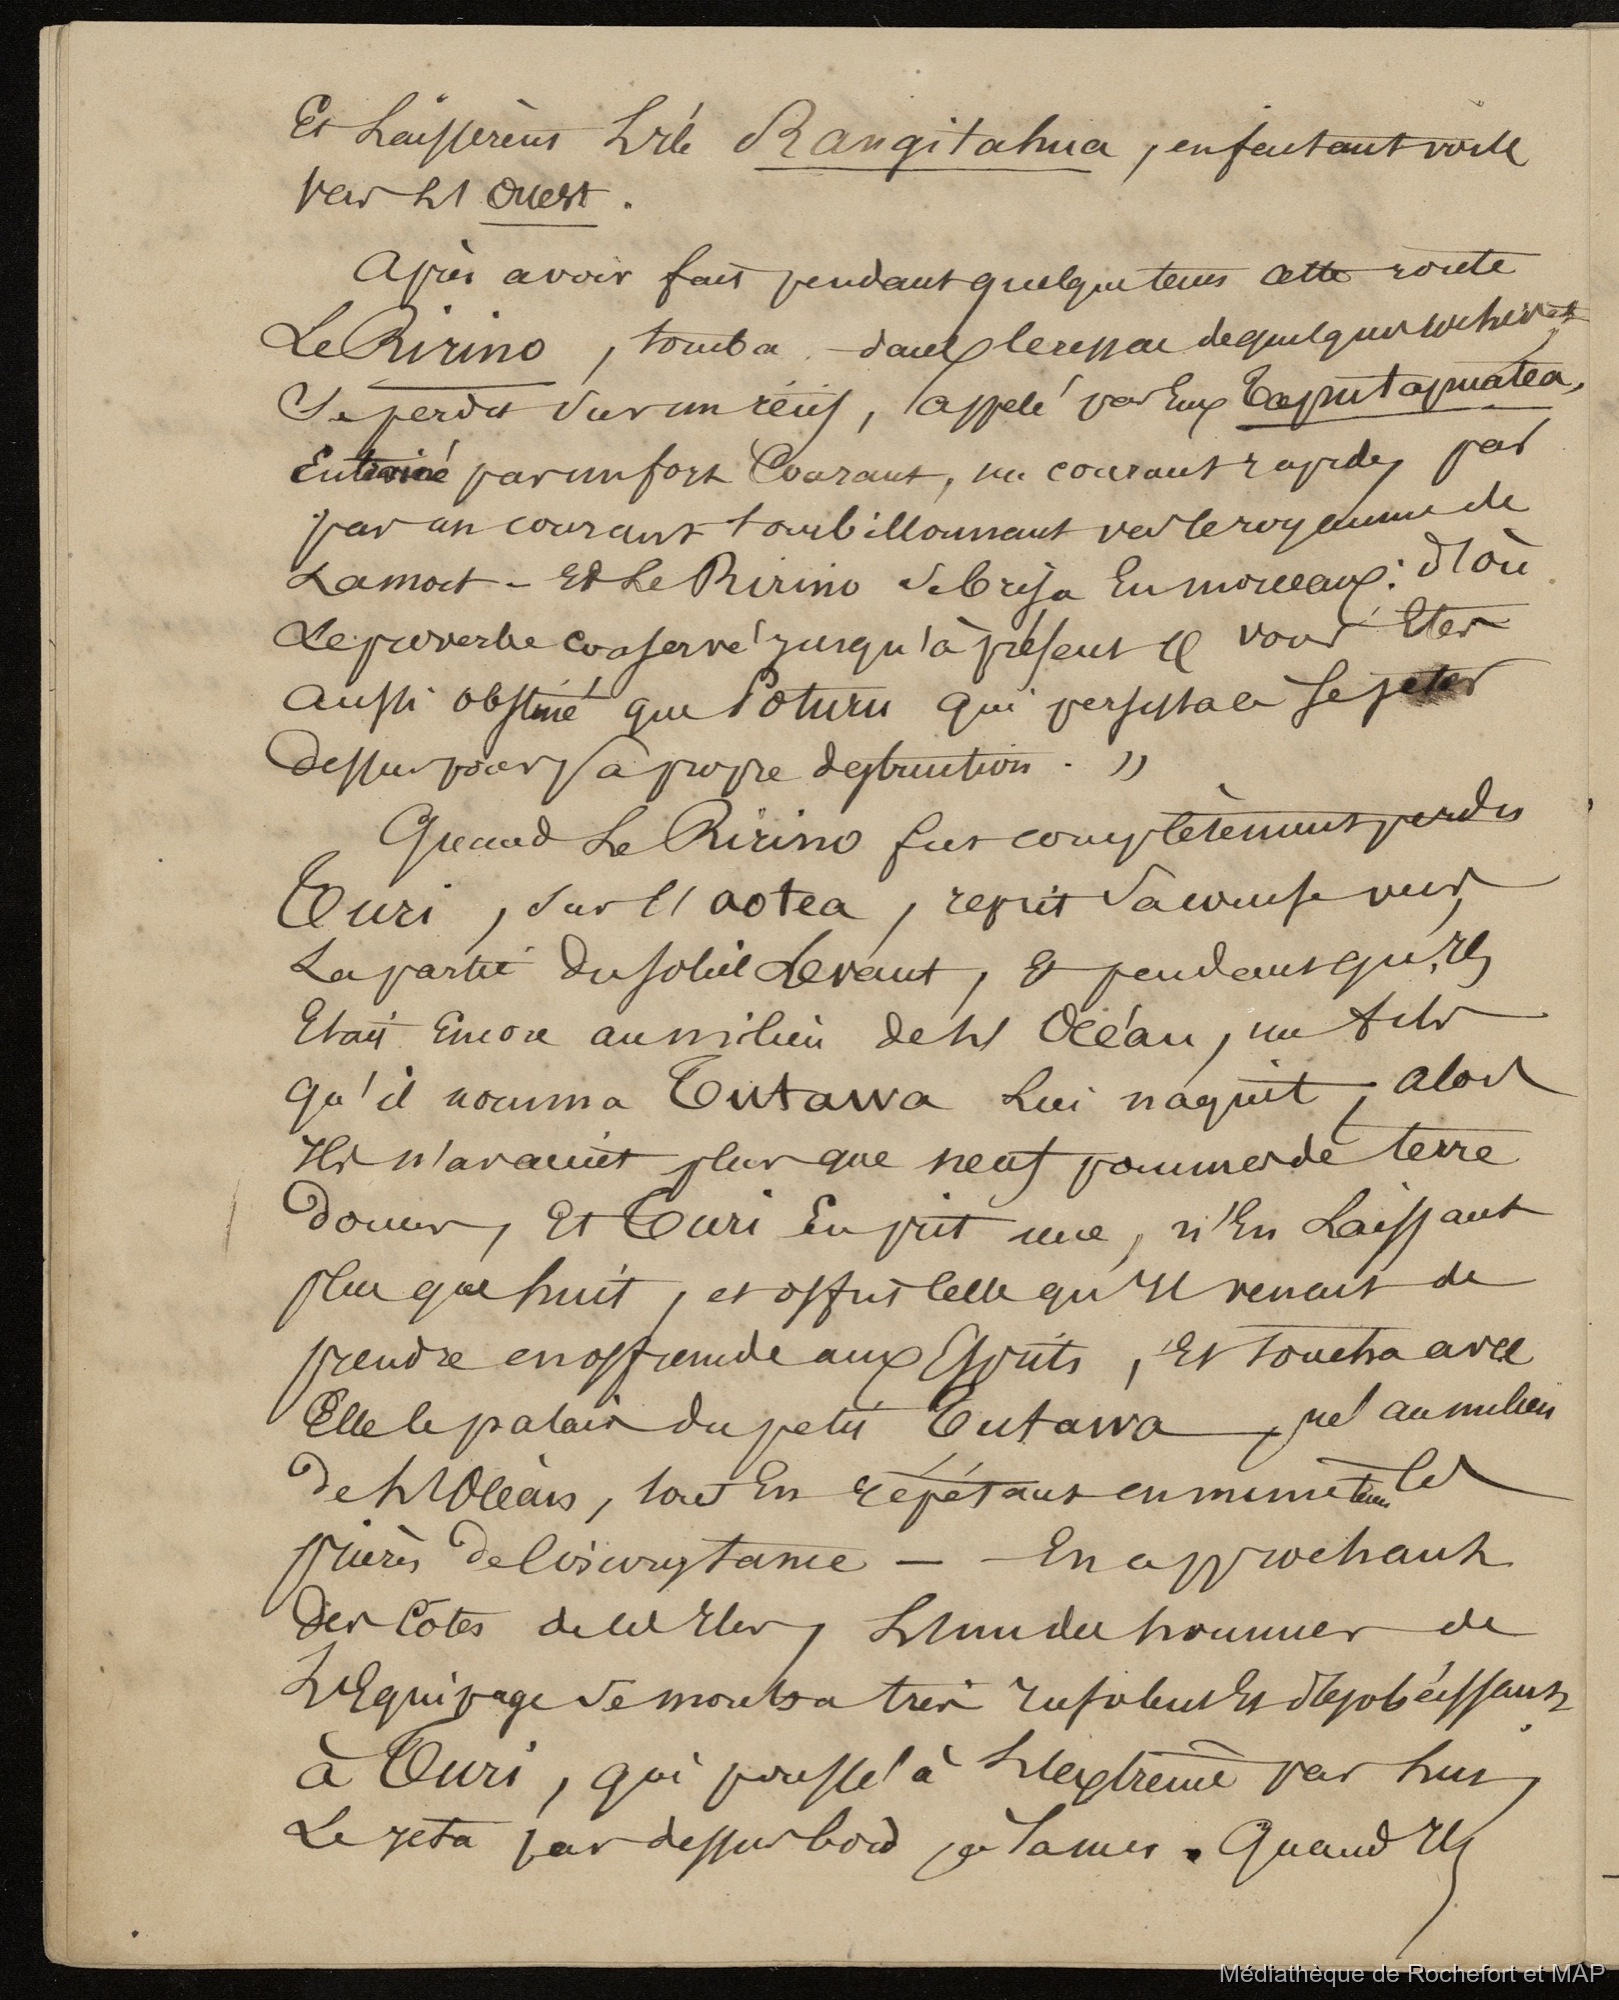 Et Laissèrent L'ile Rangitahua, en faisant voile
vers l'Ouest.
Après avoir fait pendant quelque tems cette route
Le Ririno, tomba dans le ressac de quelques rochers et
Se perdit sur un récif, appelé par Eux Taputapuatea,
Entrainé par un fort Courant, un courant rapide, par
par un courant tourbillonnant vers le royaume de
La mort - Et Le Ririno se brisa En morceaux: d'où
Le proverbe conservé jusqu'à présent « vous Etes
aussi obstiné que Poturu qui persista à se jeter
dessus pour sa propre destruction. »
Quand Le Ririno fut complètement perdu
Turi, sur l'aotea, reprit sa course vers
La partie du soleil Levant, Et pendant qu'il
Etait Encore au milieu de L'Océan, un fils
qu'il nomma Tutawa Lui naquit, alors
Ils n'avaient plus que neuf pommes de terre
douces, Et Turi En prit une, n'En Laissant
plus que huit, et offrit celle qu'il venait de
prendre en offrande aux Esprits, Et toucha avec
Elle le palais du petit Tutawa, né au milieu
de L'Océan, tout En répétant en même tems les
prières de la circonstance — En approchant
Des Côtes de ces Iles, L'un des hommes de
L'Equipage se montra très Insolent Et désobéissant
à Turi, qui poussé à L'extrême par Lui,
Le jeta par dessus bord à la mer. Quand Il
Médiathèque de Rochefort et MAP